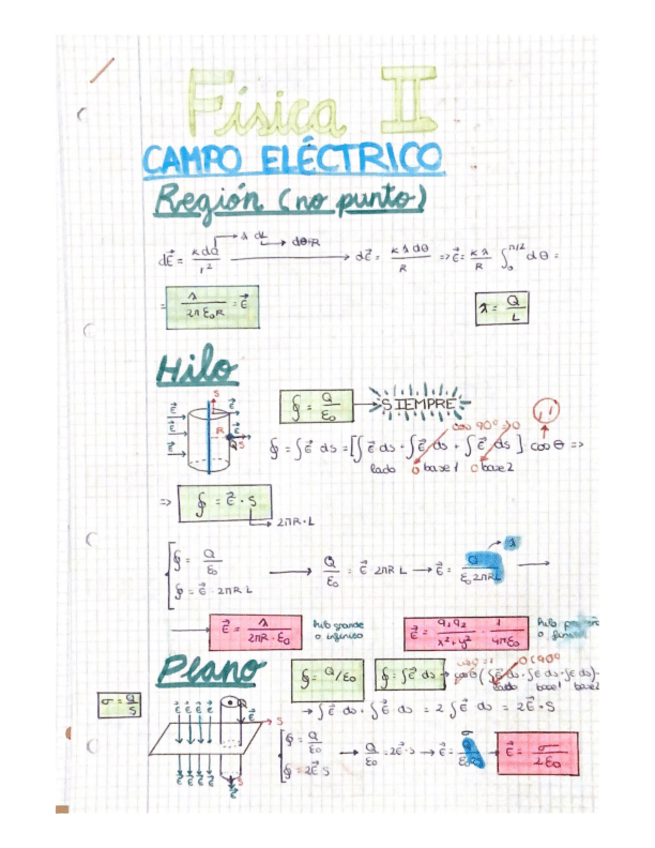 Física II
CAMPO ELÉCTRICO
Región (no punto)
λ dL → dθ·R
dE⃗ = K dQ / r² → dE⃗ = K λ dθ / R ⇒ E⃗ = K λ / R ∫₀^π/2 dθ =
= λ / 2π ε₀ R = E⃗
λ = Q / L
Hilo
∮ = Q / ε₀ → SIEMPRE
cos 90º → 0
∮ = ∫E⃗ ds = [∫E⃗ ds + ∫E⃗ ds + ∫E⃗ ds] cos θ ⇒
lado 0 base 1 0 base 2
E⃗ E⃗ E⃗ E⃗ E⃗ S R S
⇒ ∮ = E⃗ · S
2πR·L
∮ = Q / ε₀
∮ = E⃗ · 2πRL
→ Q / ε₀ = E⃗ 2πRL → E⃗ = Q / ε₀ 2πRL → λ
→ E⃗ = λ / 2πR·ε₀
hilo grande
o infinito
E⃗ = q₁q₂ / x²+y² · 1 / 4πε₀
hilo
o
Plano
∮ = Q/ε₀
∮ = ∫E⃗ ds → cosθ (∫E⃗ ds ∫E⃗ ds ∫E⃗ ds)
lado base1 base2
σ = Q / S
→ ∫E⃗ ds + ∫E⃗ ds = 2 ∫E⃗ ds = 2E⃗·S
E⃗ E⃗ E⃗ E⃗ E⃗ S
E⃗ E⃗ E⃗ E⃗ S E⃗
∮ = Q / ε₀
∮ = 2E⃗ S
→ Q / ε₀ = 2E⃗·S → E⃗ = → E⃗ = σ / 2ε₀